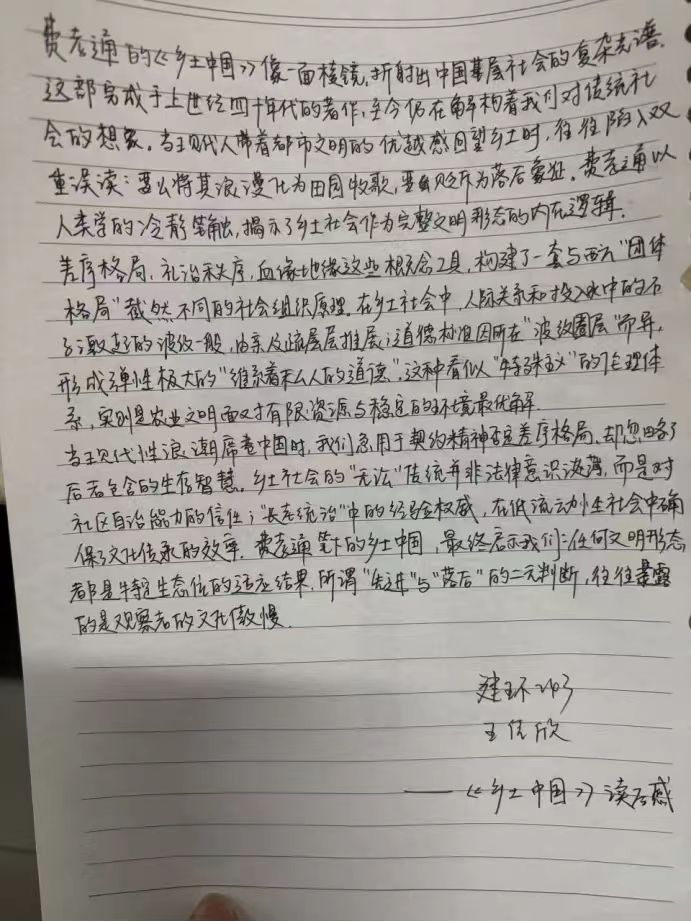 费孝通的《乡土中国》像一面棱镜,折射出中国基层社会的复杂光谱.
这部写成于上世纪四十年代的著作,至今仍在解构着我们对传统社
会的想象。当现代人带着都市文明的优越感回望乡土时,往往陷入双
重误读:要么将其浪漫化为田园牧歌,要么贬斥为落后象征。费孝通以
人类学的冷静笔触,揭示了乡土社会作为完整文明形态的内在逻辑.
差序格局、礼治秩序,血缘地缘这些概念工具,构建了一套与西方"团体
格局"截然不同的社会组织原理.在乡土社会中,人际关系和投入水中的石
子激起的波纹一般,由亲及疏层层推展;道德标准因所在"波纹圈层"而异,
形成弹性极大的"维系着私人的道德".这种看似"特殊主义"的伦理体
系,实则是农业文明面对有限资源与稳定的环境最优解.
当现代性浪潮席卷中国时,我们急用于契约精神否定差序格局,却忽略了
后者包含的生存智慧。乡土社会的"无讼"传统并非法律意识淡薄,而是对
社区自治能力的信任;"长老统治"中的经验权威,在低流动性社会中确
保了文化传承的效率.费孝通笔下的乡土中国,最终启示我们:任何文明形态
都是特定生态位的适应结果.所谓"先进"与"落后"的二元判断,往往暴露
的是观察者的文化傲慢.
建环243
王佳欣
——《乡土中国》读后感